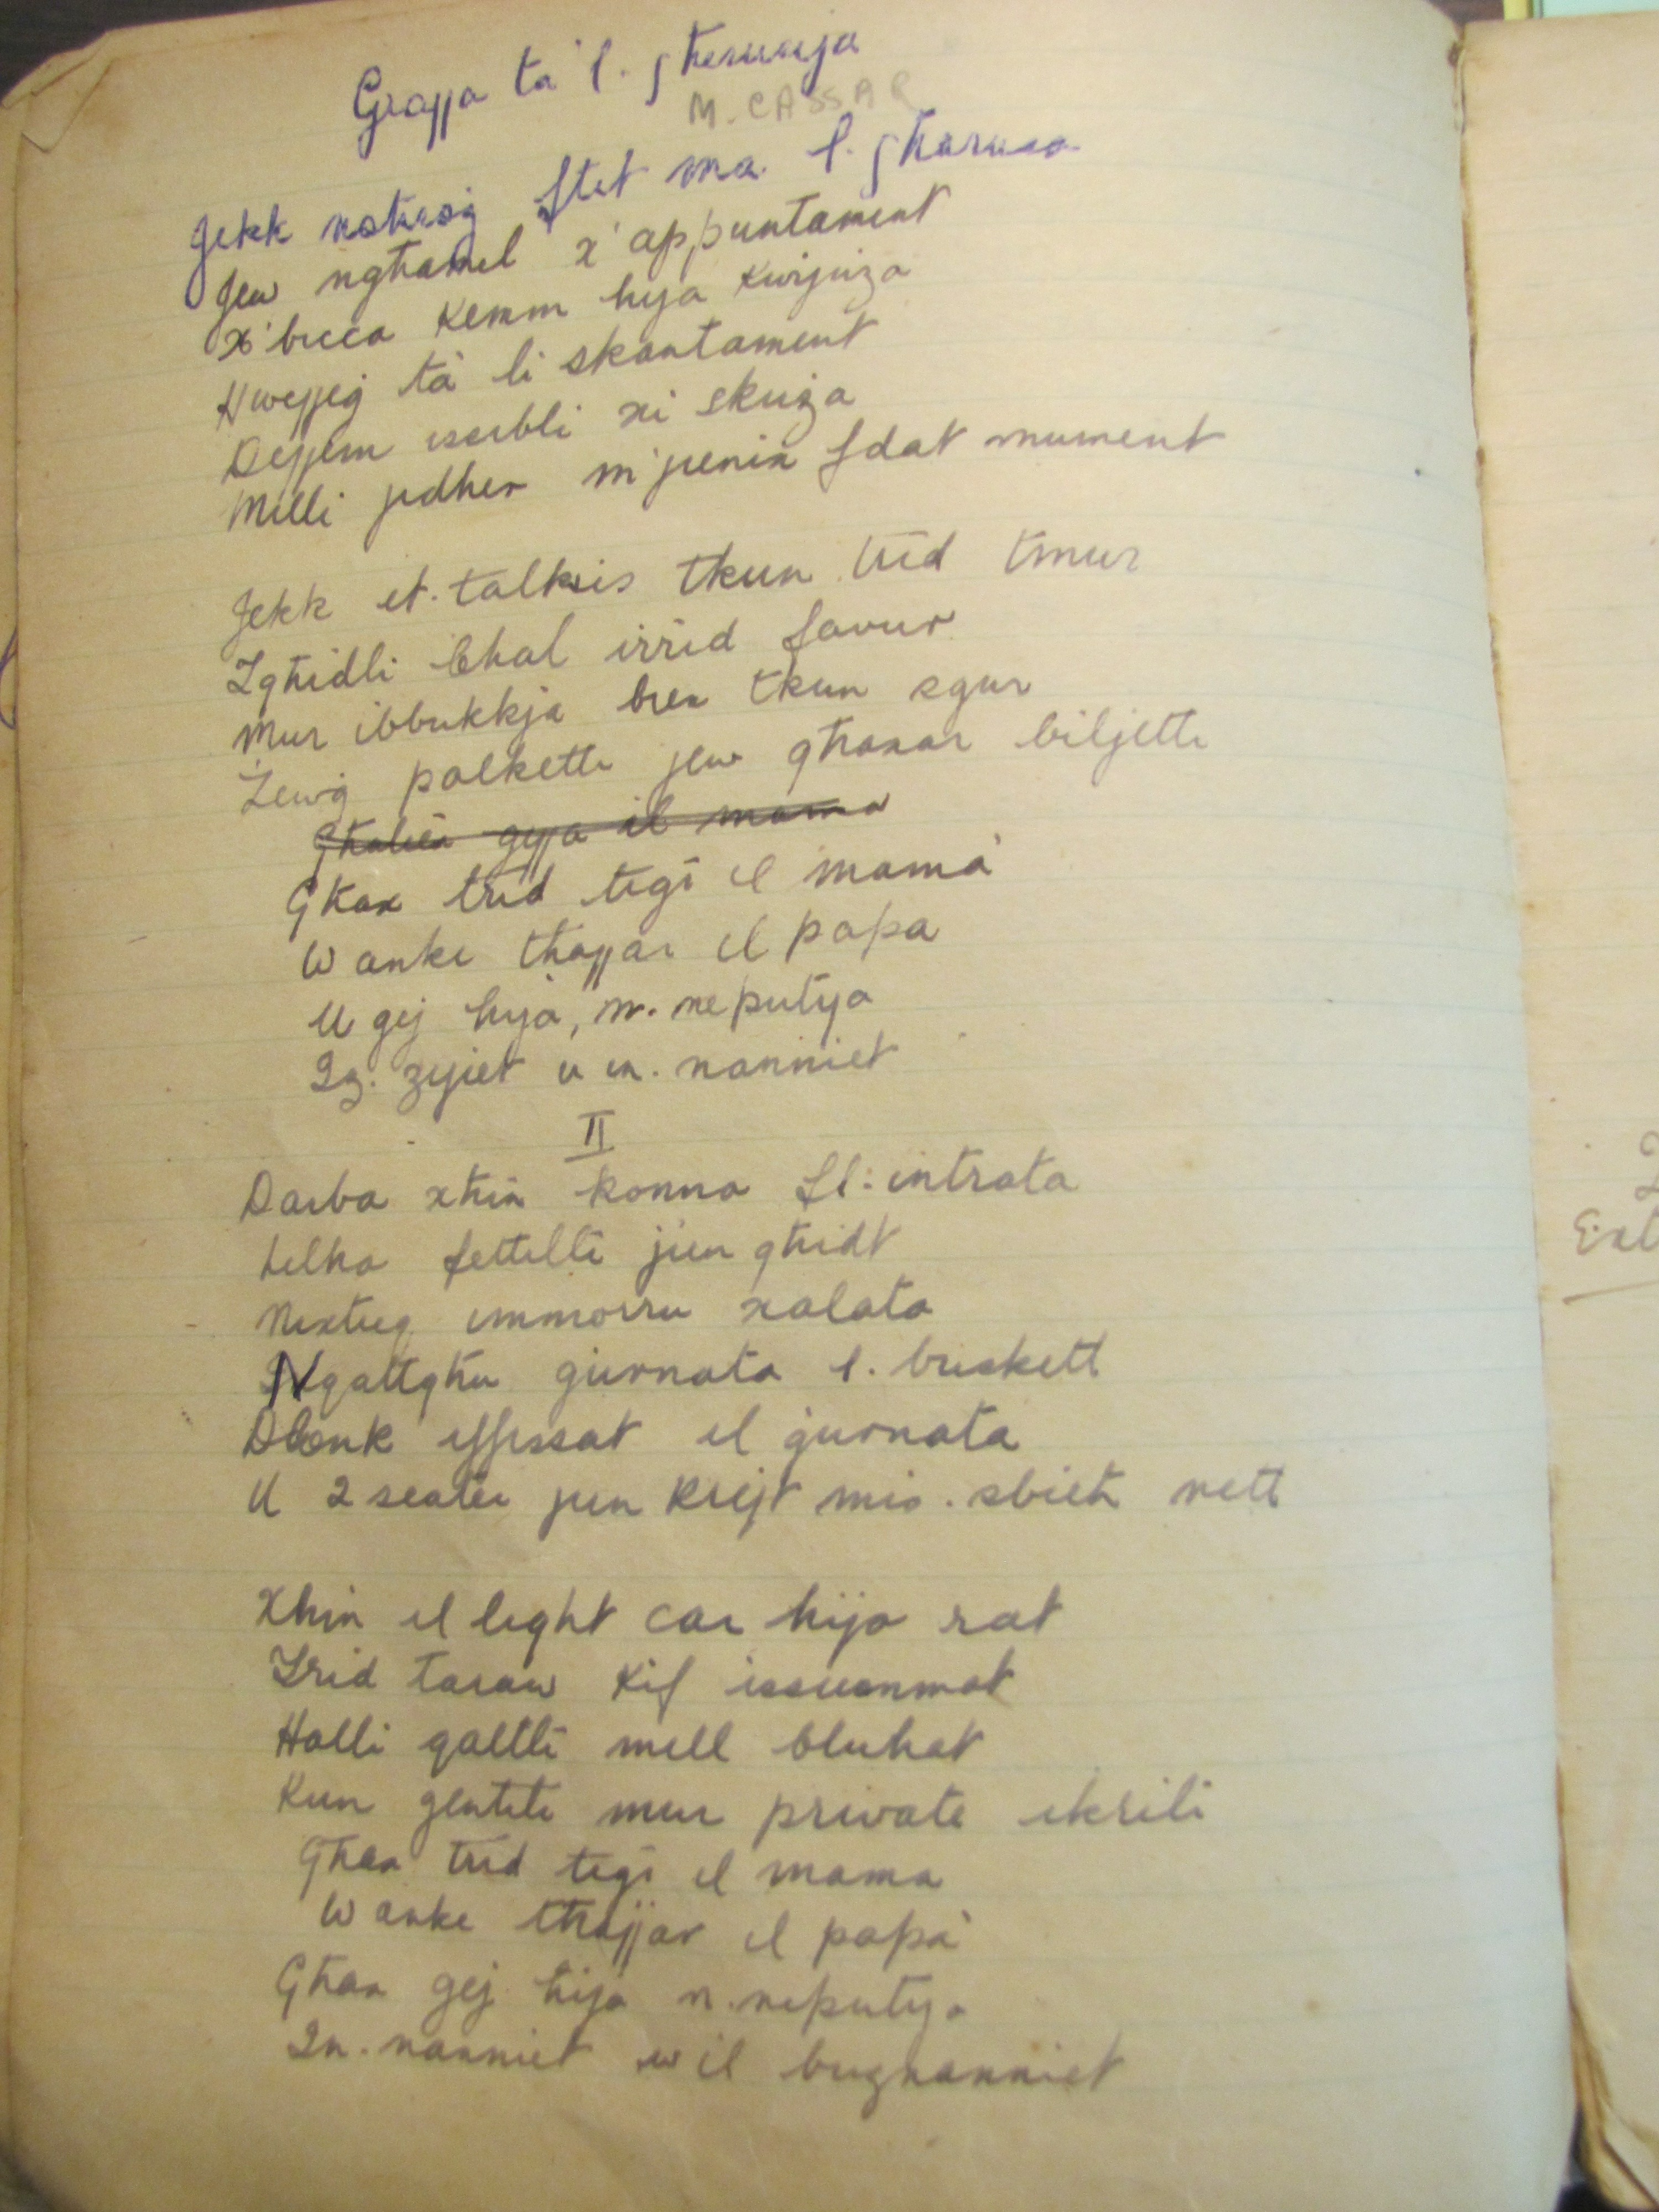 Grajja ta' l. għerusija
M. CASSAR
Jekk noħroġ ftit ma l. għarusa
Jew ngħamel x'appuntament
x'bicca kemm hija kurjuża
Hwejjeġ tà li skantament
Dejjem issibli xi skuża
Milli jidher m'jienix f dat mument
Jekk it. talkis tkun trid tmur
Igħidli Chal irrid favur
Mur ibbukkja biex tkun sgur
Żewġ palketti jew għaxar biljetti
Għaliex ġejja il mama
Għax trid tiġi il mamà
W anke tħajjar il papa
U ġej hija, n. neputija
Iz. zijiet u in. nanniet
II
Darba xħin konna fl: intrata
telha fettilli jien għidt
Nixtieq immorru xalata
Nqattgħu ġurnata l. buskett
Dlonk iffissat il ġurnata
U 2 seater jien krejt mis. sbieħ nett
Xhin il light car hija rat
Irid taraw kif issusmat
Halli qaltli mill bluhat
Kun ġentili mur private ikrili
Għax trid tiġi il mama
W anke tħajjar il papà
Għax ġej hija n. neputija
In. nanniet w il buznanniet